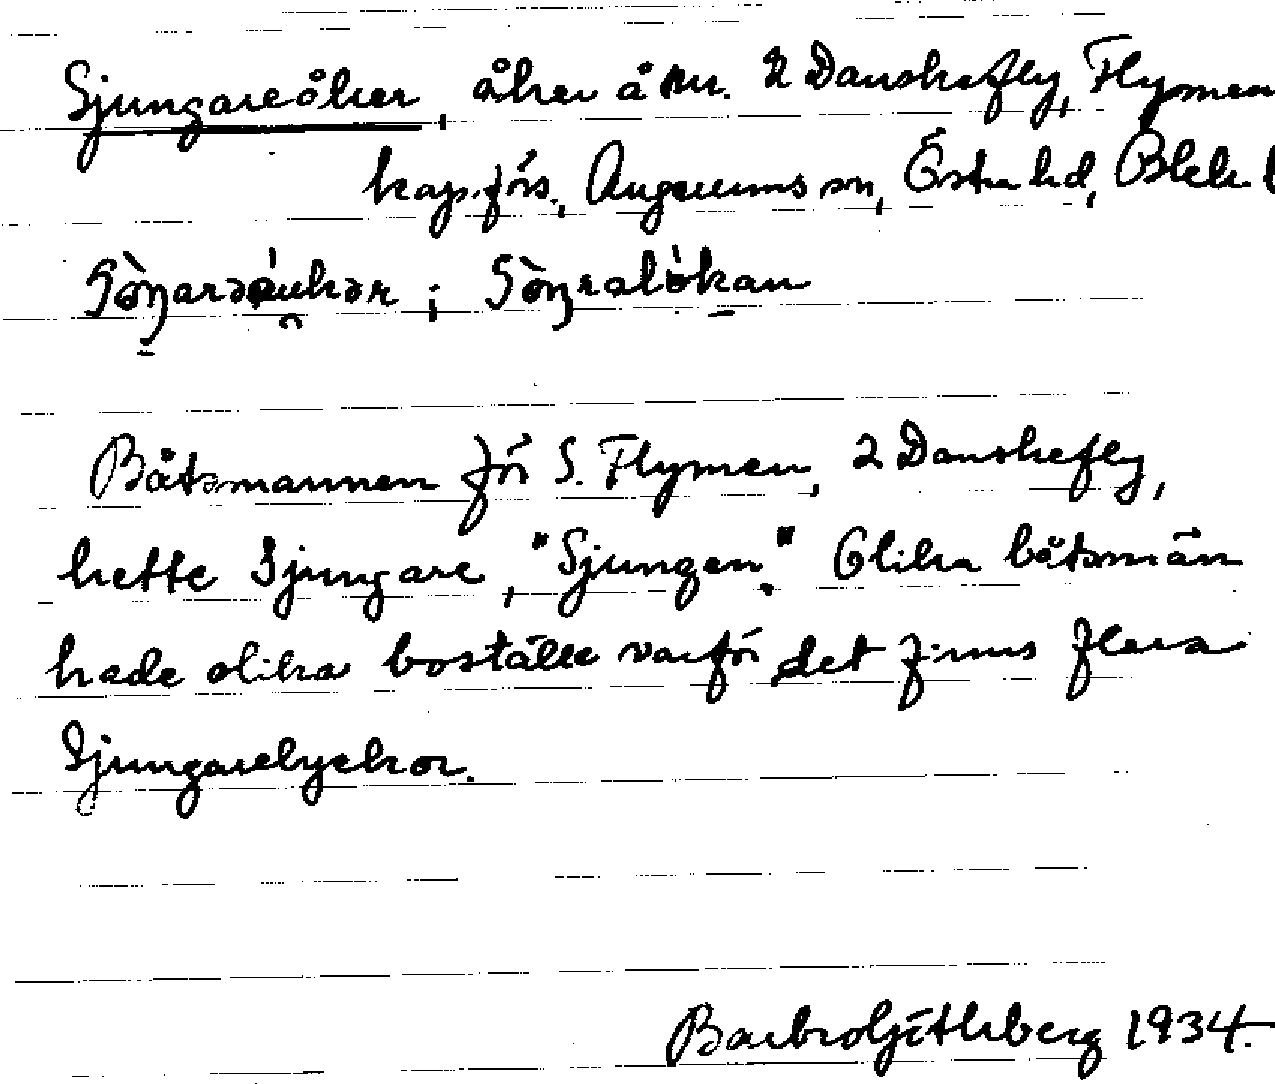 Sjungareåker, åker å nr. 2 Danskefly, Flymen
kap.förs., Augerums sn, Östra hd, Blek. l
Båtsmannen för S. Flymen, 2 Danskefly,
hette Sjungare, "Sjungen". Olika båtsmän
hade olika boställe varför det finns flera
Sjungarelyckor.
Barbro 1934.